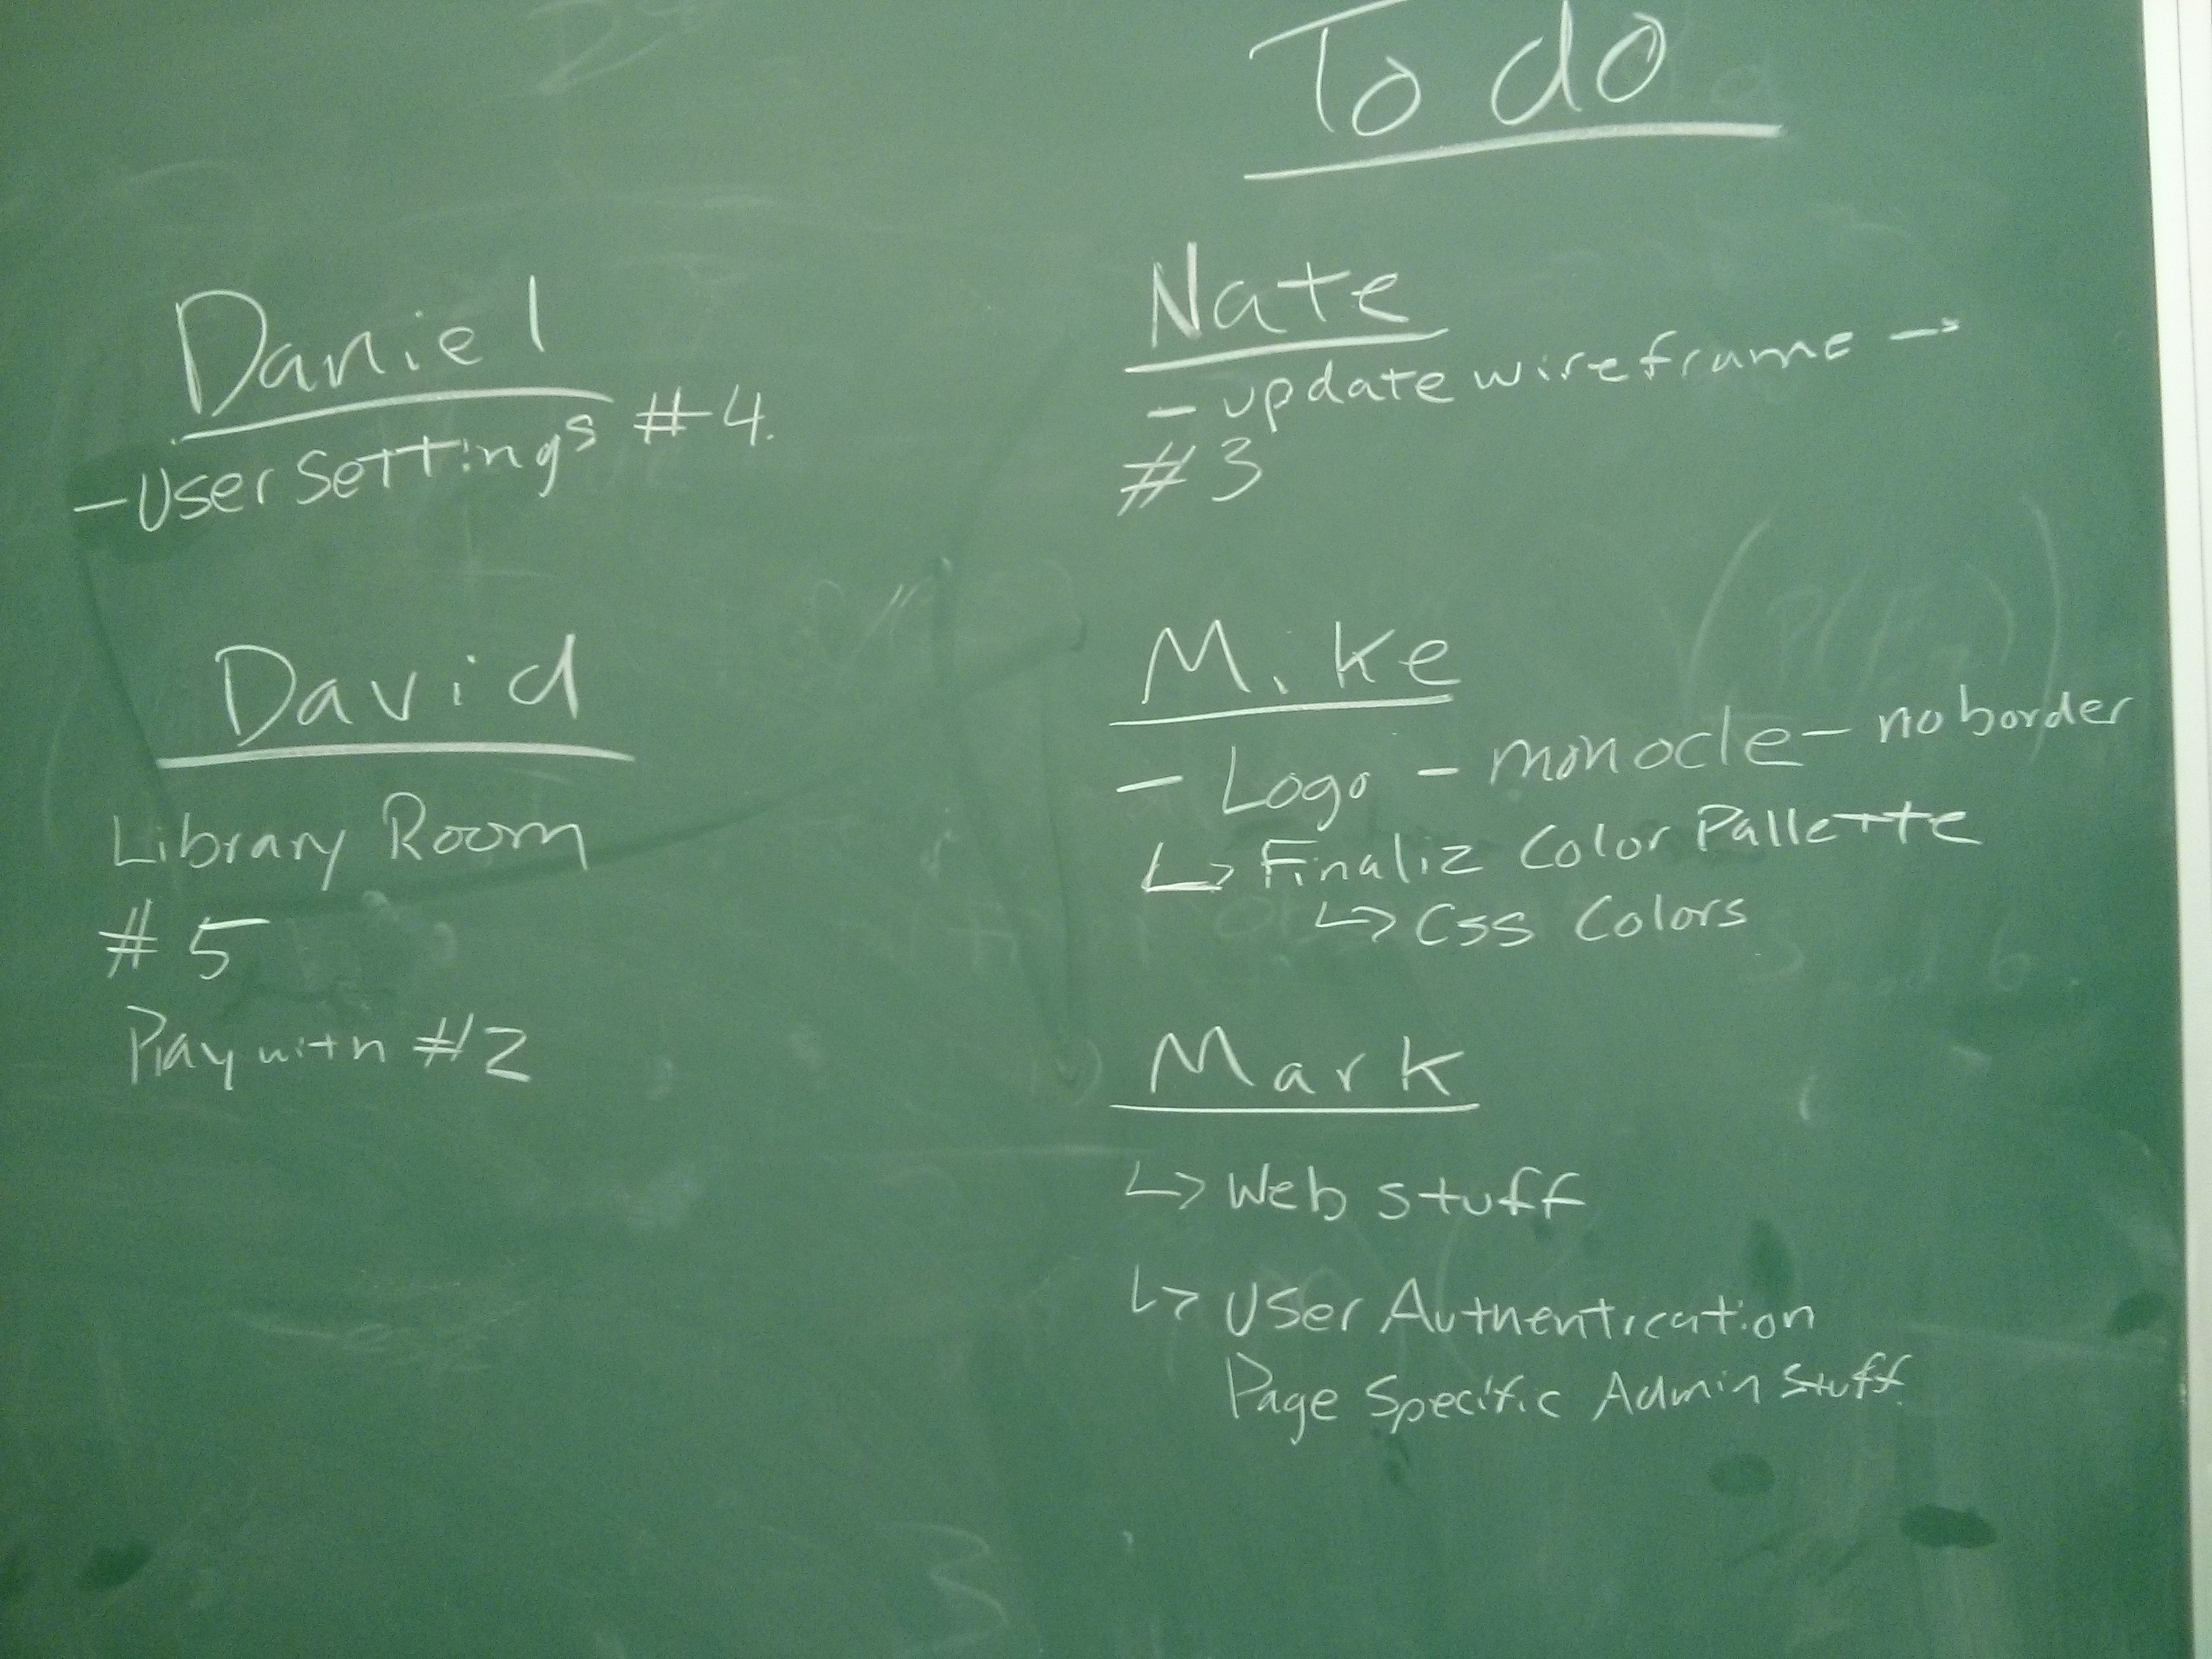 To do
Daniel
- User Settings #4.
David
Library Room
#5
Play with #2
Nate
- update wireframe →
#3
Mike
- Logo - monocle - no border
↳ Finaliz Color Pallette
↳ Css Colors
Mark
↳ Web stuff
↳ User Authentication
Page Specific Admin Stuff.